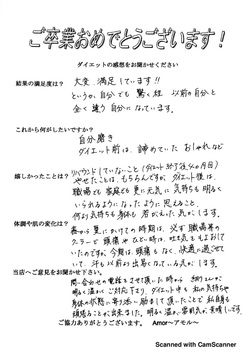 ご卒業おめでとうございます！
ダイエットの感想をお聞かせください
結果の満足度は？
大変、満足しています!!
というか、自分でも驚く程、以前の自分と
全く違う自分になっています。
これから何がしたいですか？
自分磨き
ダイエット前は、諦めていたおしゃれなど
嬉しかったことは？
リバウンドしていないこと(ダイエット終了後、4ヶ月目)
やせたことは、もちろんですが、ダイエット後は、
職場でも家庭でも更に元気に気持ちも明るく
いられるようになったように思えること。
何より気持ちも身体も若がえった気がします。
体調や肌の変化は？
春から夏にかけての時期は、必ず職場の
クーラーで頭痛やひどい時は、吐き気もよおして
いたのですが、今年は、頭痛もなく、快適に過ごせて
いて、汗も以前より出易くなっている気がします。
当店へご意見をお聞かせ下さい。
問い合わせの電話をさせて頂いた時から
明るく温かくご対応下さり、ダイエット中も私の気持ちや
身体の状態に寄り添い励まして頂いたことで私自身
頑張ることが出来ました。明るく温かい
ご協力ありがとうございます。 Amor〜アモル〜
Scanned with CamScanner